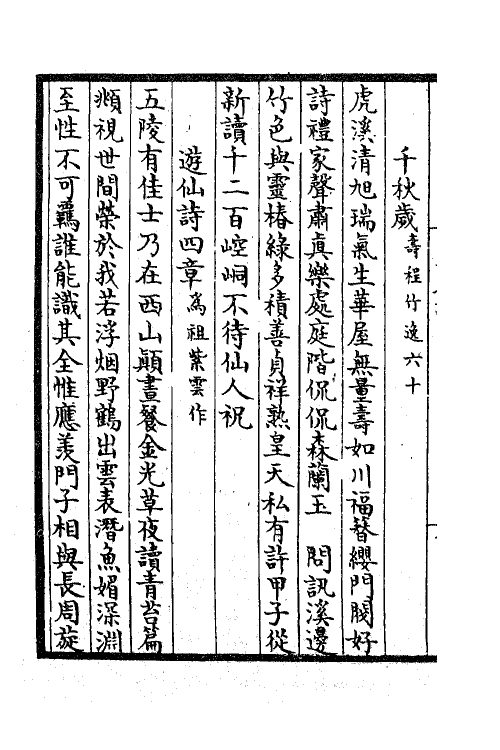 千秋歲壽程竹逸六十
虎溪清旭瑞氣生華屋無量壽如川福簪纓門閥好
詩禮家聲肅真樂處庭階侃侃森蘭玉　問訊溪邊
竹色與靈椿綠多積善貞祥熟皇天私有許甲子從
新讀千二百崆峒不待仙人祝
遊仙詩四章為祖紫雲作
五陵有佳士乃在西山顛晝餐金光草夜讀青苔篇
頫視世間榮於我若浮烟野鶴出雲表潛魚媚深淵
至性不可羈誰能識其全惟應羨門子相與長周旋